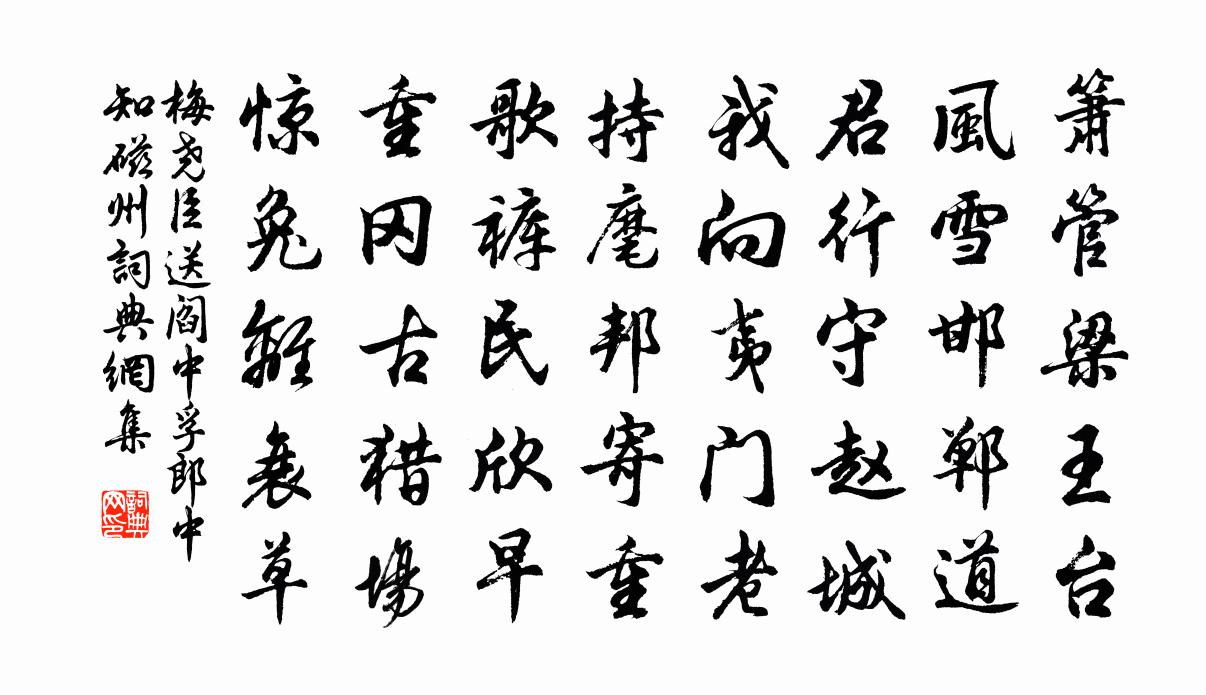 簫管梁王台
風雪邯郸道
君行守赵城
我向夷门老
持麾邦寄重
歌裤民欣早
重冈古猎場
惊兔離衰草
梅尧臣送阎中孚郎中
知磁州詞典網集
詞典网印